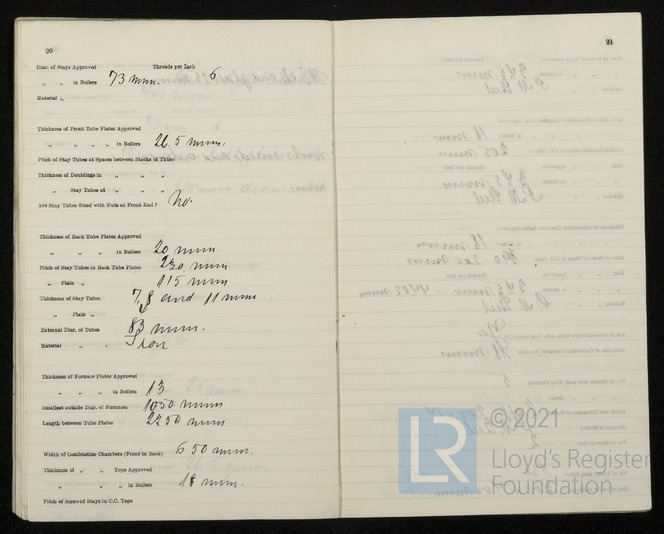 20
Diar. of Stays Approved Threads per Inch 6
„ „ in Boilers 73 mm.
Material „
Thickness of Front Tube Plates Approved
„ „ „ „ in Boilers 26.5 mm.
Pitch of Stay Tubes at Spaces between Stacks of Tubes
Thickness of Doublings in „ „ „
„ Stay Tubes at „ „ „
Are Stay Tubes fitted with Nuts at Front End? No.
Thickness of Back Tube Plates Approved
„ „ „ „ in Boilers 20 mm
Pitch of Stay Tubes in Back Tube Plates 230 mm
„ Plain „ 115 mm
Thickness of Stay Tubes 7, 8 and 11 mm
„ Plain „ 4
External Diar. of Tubes 83 mm.
Material „ Iron
Thickness of Furnace Plates Approved
„ „ „ in Boilers 13
Smallest outside Diar. of Furnaces 1050 mm
Length between Tube Plates 2250 mm
Width of Combustion Chambers (Front to Back) 650 mm.
Thickness of „ „ Tops Approved
„ „ „ in Boilers 18 mm.
Pitch of Screwed Stays in C.C. Tops
21
LR
© 2021
Lloyd's Register
Foundation